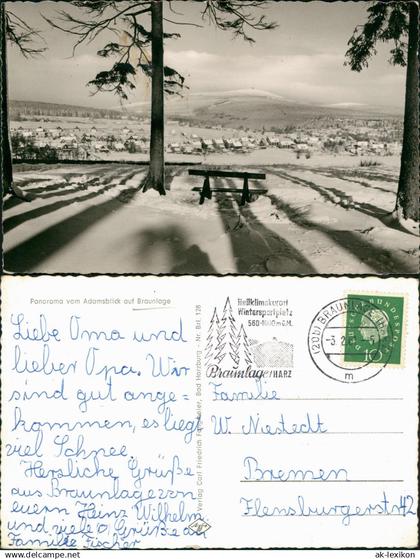 Panorama vom Adamsblick auf Braunlage
Liebe Oma und
lieber Opa. Wir
sind gut ange=
kommen, es liegt
viel Schnee.
Herzliche Grüße
aus Braunlage von
euern Heinz Wilhelm
und viele Grüße an
Familie Fischer
Verlag Carl Friedrich Fangmeier, Bad Harzburg - Nr. Brl. 128
Heilklimakurort
Wintersportplatz
560-1000m ü.M.
Braunlage/HARZ
(20b) BRAUNLAGE
-3.2.
m
DEUTSCHE BUNDESPOST
10
Familie
W. Niestedt
Bremen
Flensburgerstr. 42
ak-lexikon.de